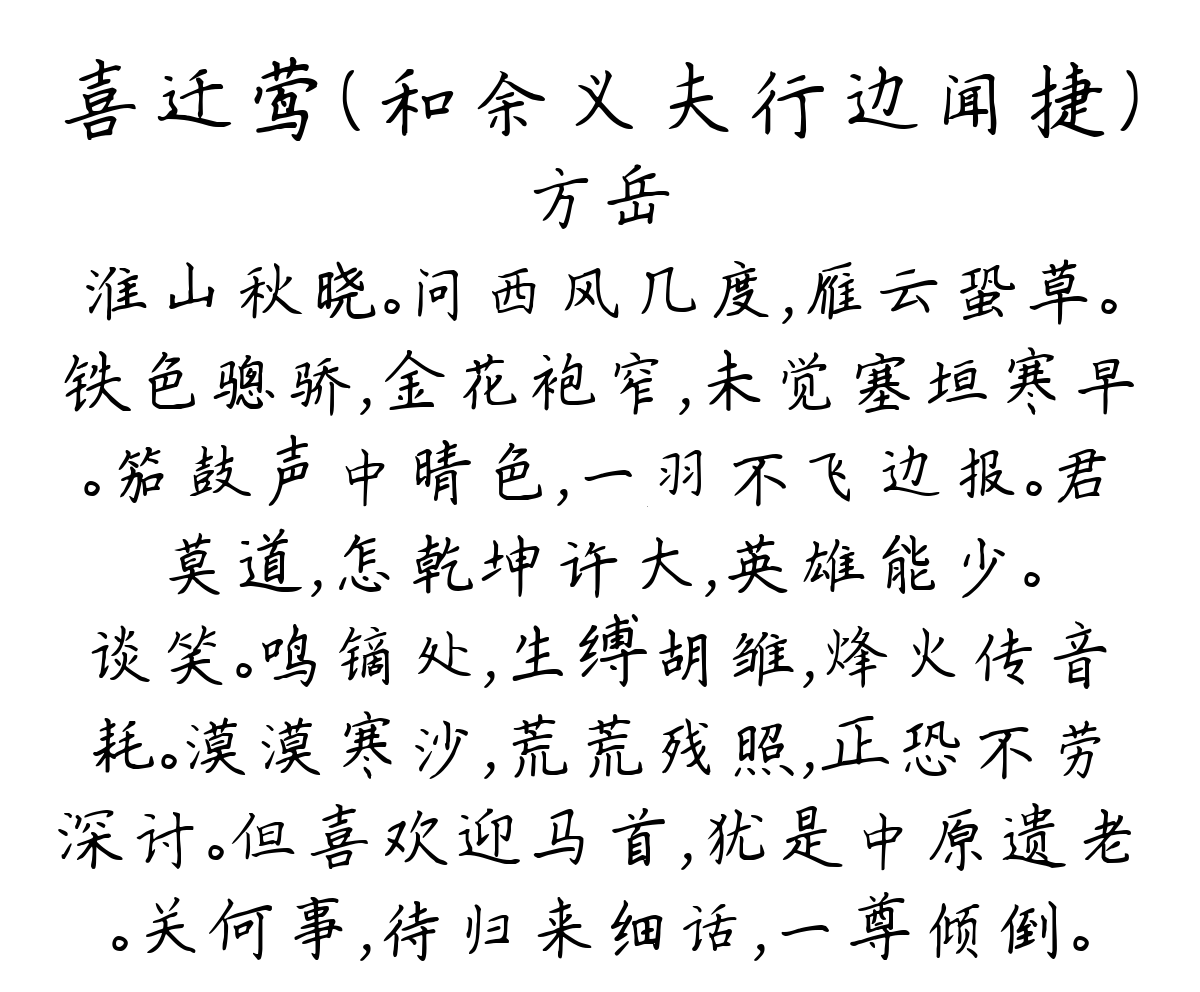 喜迁莺(和余义夫行边闻捷)
方岳
淮山秋晓。问西风几度,雁云蛩草。
铁色骢骄,金花袍窄,未觉塞垣寒早
。笳鼓声中晴色,一羽不飞边报。君
莫道,怎乾坤许大,英雄能少。
谈笑。鸣镝处,生缚胡雏,烽火传音
耗。漠漠寒沙,荒荒残照,正恐不劳
深讨。但喜欢迎马首,犹是中原遗老
。关何事,待归来细话,一尊倾倒。